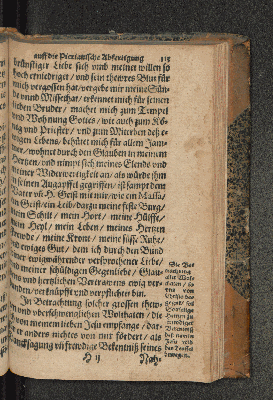 auff die Pietianische Abfertigung 115
brünstiger Liebe sich umb meinet willen so
hoch erniedriget / und sein thewres Blut für
mich vergossen hat / vergibt mir meine Sün-
de unnd Missethat / erkennet mich für seinen
lieben Bruder / machet mich zum Tempel
und Wohnung Gottes / wie auch zum Kö-
nig und Priester / und zum Miterben deß e-
wigen Lebens / behütet mich für allem Jam-
mer / wohnet durch den Glauben in meinem
Hertzen / und nimpt sich meines Elends und
meiner Widerwertigkeit an / als würde ihm
in seinen Augapffel gegriffen / ist sampt dem
Vater uñ H. Geist mit mir /
Geist ein Leib / darzu meine feste Burg /
mein Schilt / mein Hort / meine Hülffe /
mein Heyl / mein Leben / meines Hertzen
Freude / meine Krone / meine süsse Ruhe /
und ewiges Gut / dem ich durch den Bund
seiner ewigwährender versprochener Liebe /
und meiner schüldigen Gegenliebe / Glau-
bens und hertzlichen Vertrawens ewig ver-
bunden / verknüpfft und verpflichtet bin.
In Betrachtung solcher grossen thew-
ren und überschwenglichen Wolthaten / die
ich von meinem lieben Jesu empfange / dar-
für er anders nichts von mir fordert / als
Dancksagung uñ frewdige Bekentniß seines
H ij Nah-